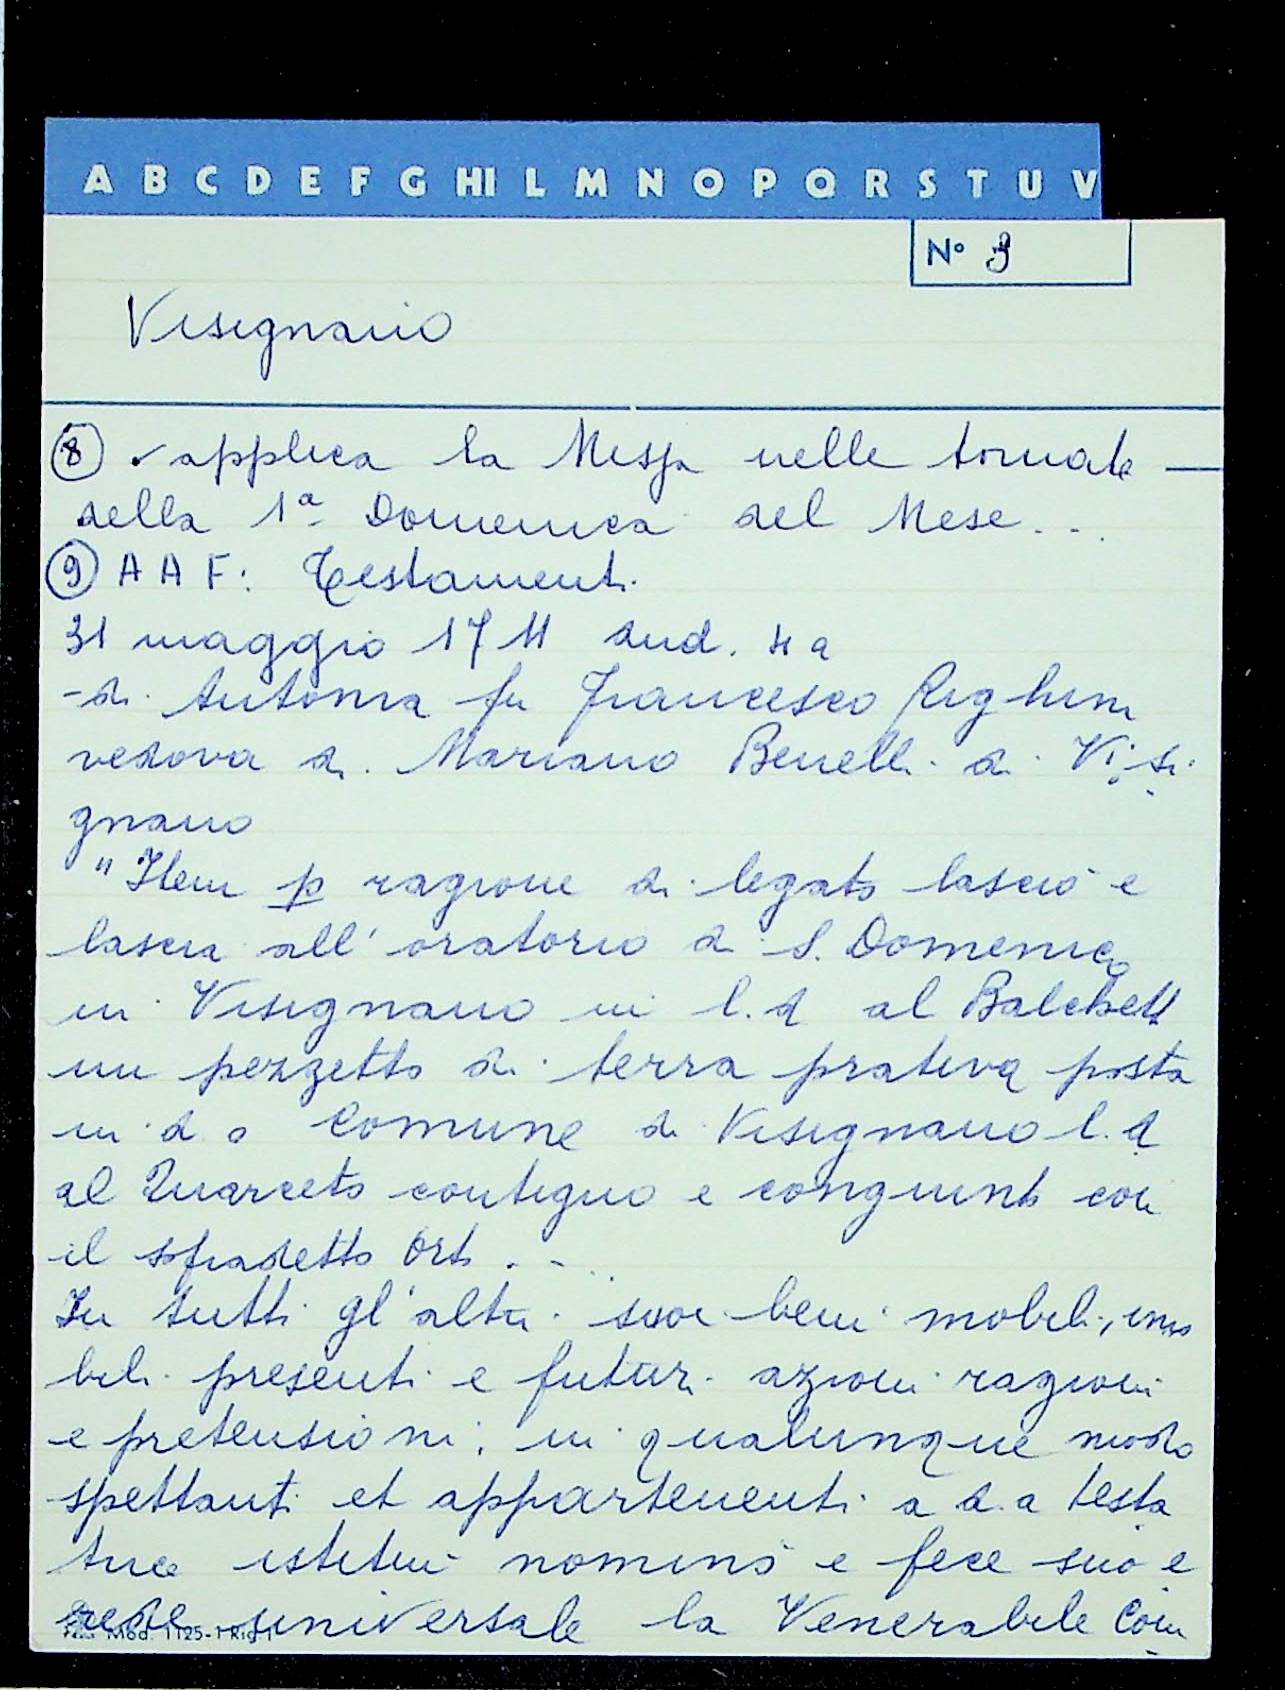 A B C D E F G HI L M N O P Q R S T U V
N° 3
Visignano
⑧ applica la Messa nelle tornate —
della 1ª Domenica del Mese...
⑨ A A F: Testamenti
31 maggio 1711 Ind. 4a
- di Antonia fu Francesco Righini
vedova di Mariano Benelli di Visi
gnano
"Item p ragione di legato lasciò e
lascia all' oratorio di S. Domenico
in Visignano in l.d al
un pezzetto di terra prativa posta
in d o Comune di Visignano l.d
al Querceto contiguo e congiunto con
il sopradetto Orto . . .
In tutti gl'altri suoi beni mobili, imo
bili presenti e futuri azioni ragioni
e pretensioni, in qualunque modo
spettanti et appartenenti a d.a testa
trice istituì nominò e fece suo e
rede universale la Venerabile Com
Mod. 1125-1 Rig 1